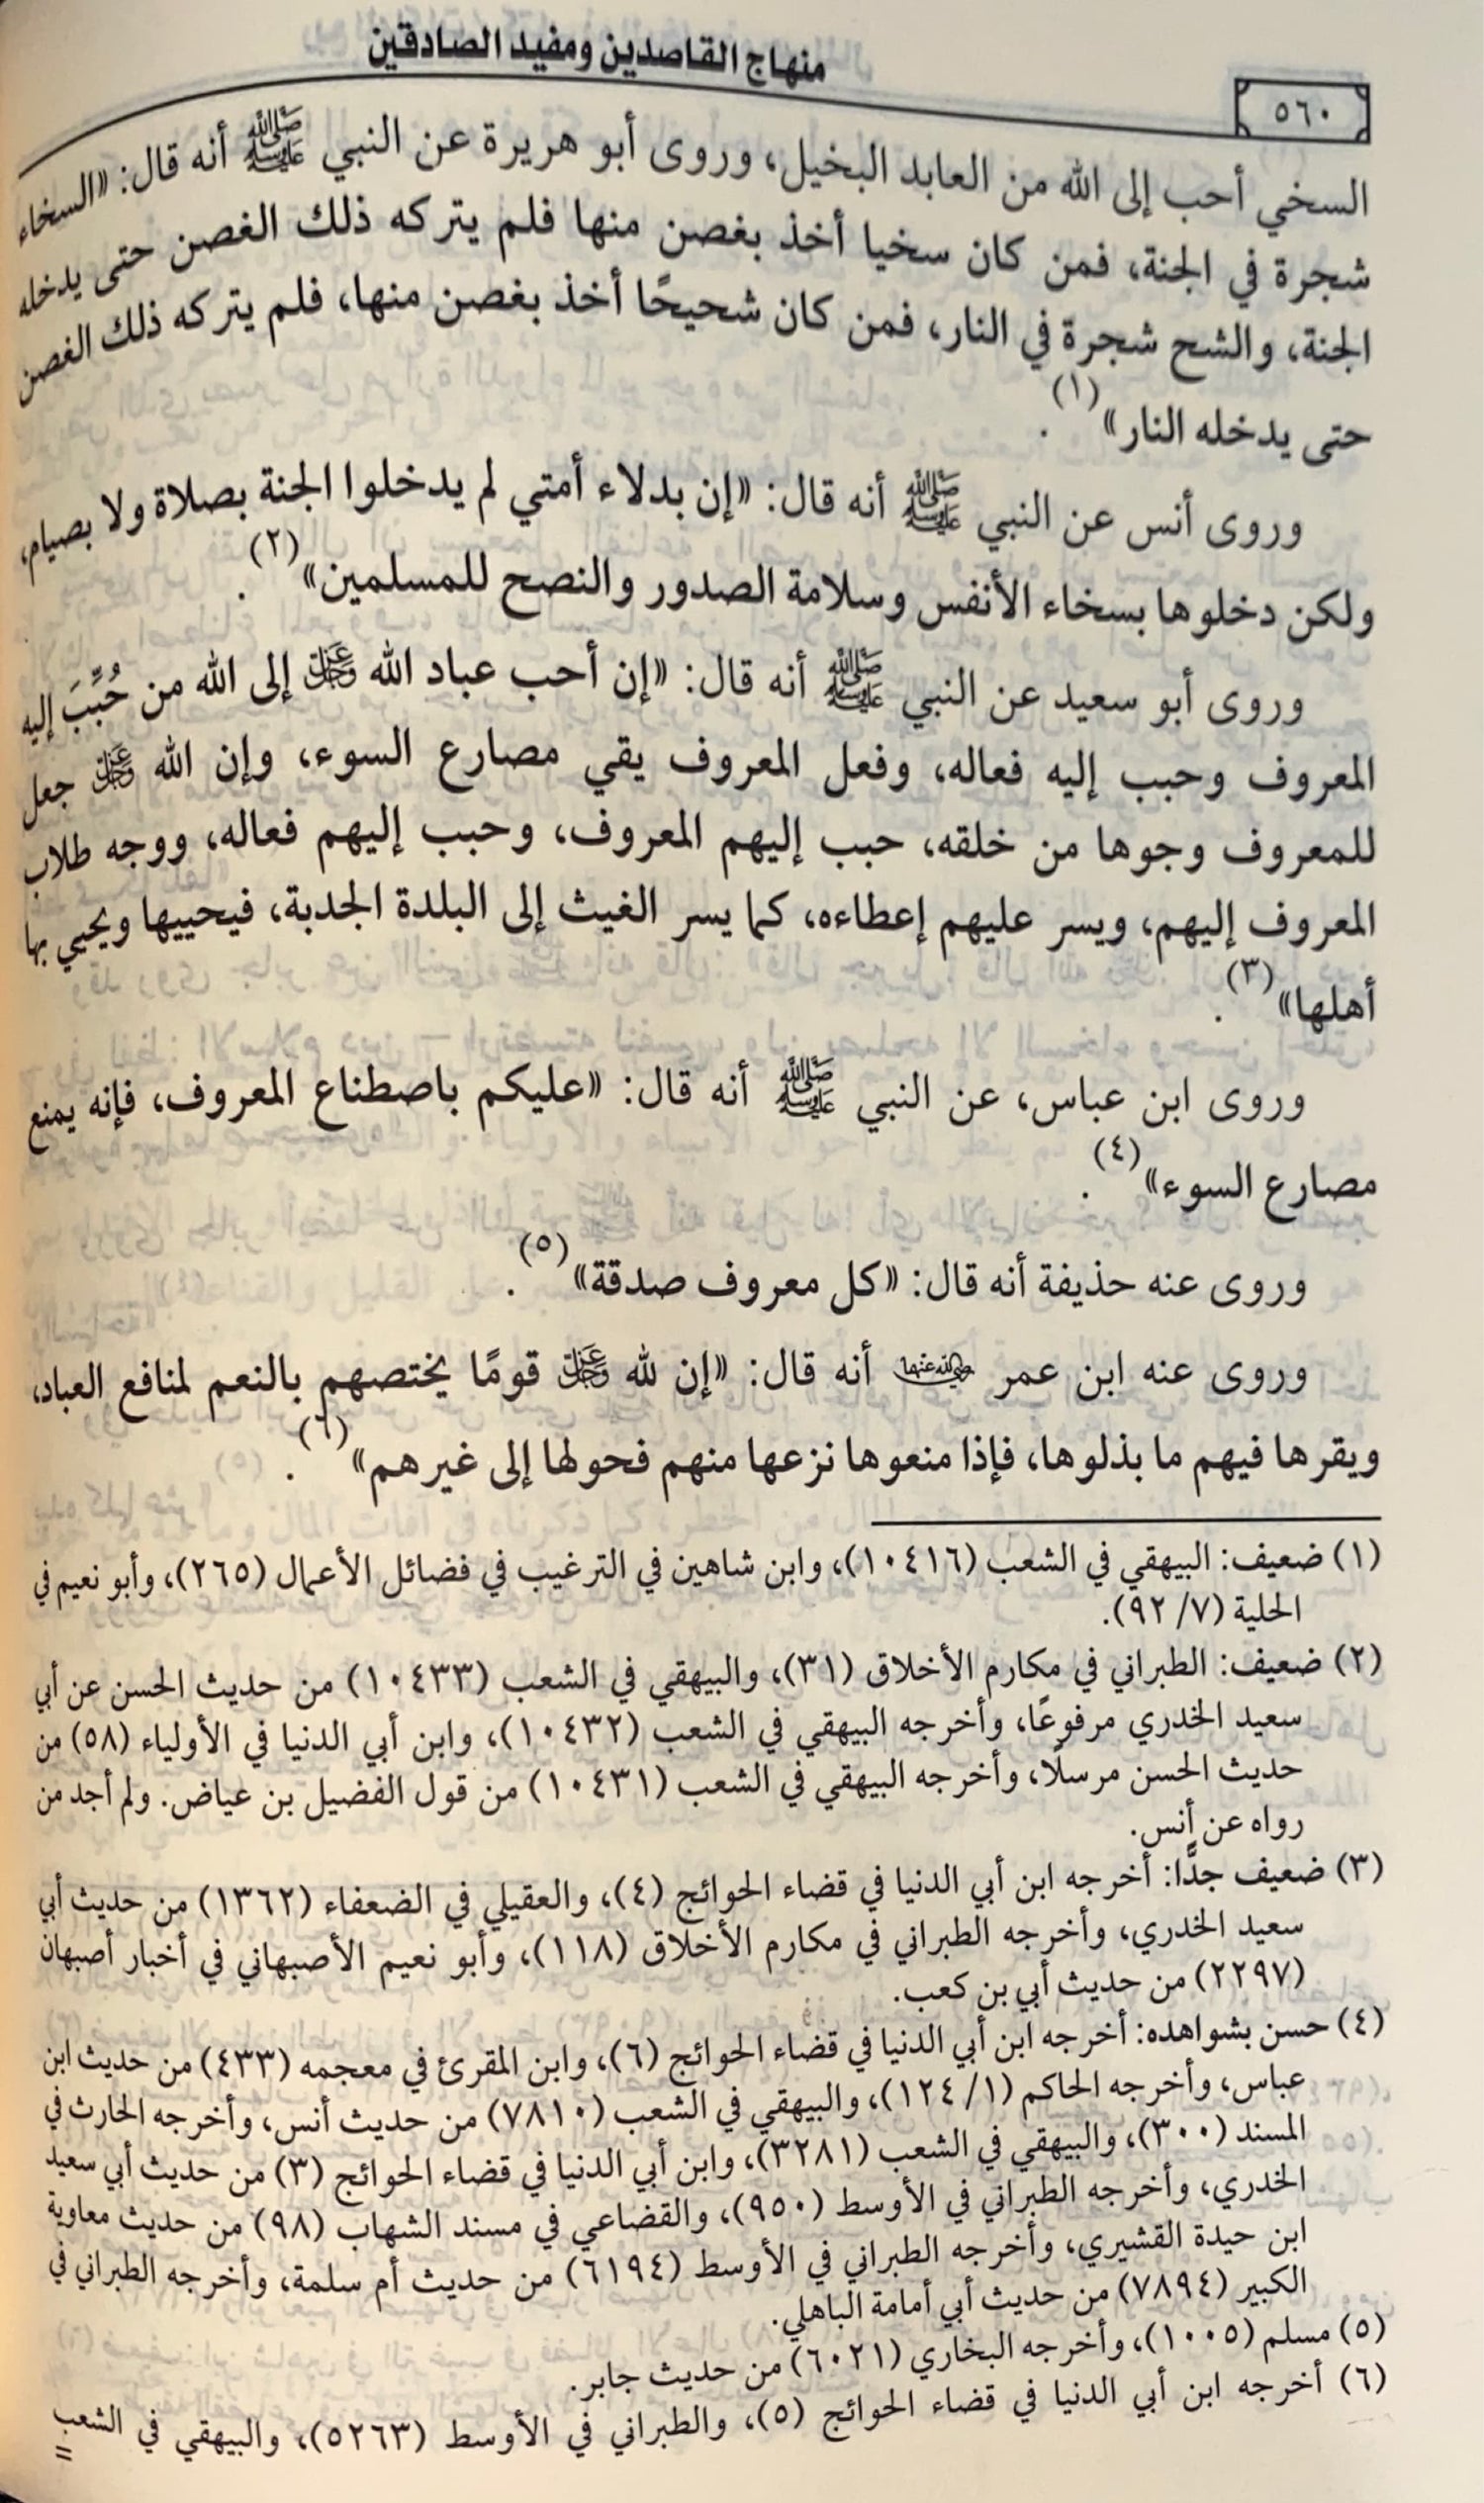 منهاج القاصدين ومفيد الصادقين
٥٦٠
السخي أحب إلى الله من العابد البخيل، وروى أبو هريرة عن النبي ﷺ أنه قال: «السخاء
شجرة في الجنة، فمن كان سخيا أخذ بغصن منها فلم يتركه ذلك الغصن حتى يدخله
الجنة، والشح شجرة في النار، فمن كان شحيحًا أخذ بغصن منها، فلم يتركه ذلك الغصن
حتى يدخله النار»(١).
وروى أنس عن النبي ﷺ أنه قال: «إن بدلاء أمتي لم يدخلوا الجنة بصلاة ولا بصيام،
ولكن دخلوها بسخاء الأنفس وسلامة الصدور والنصح للمسلمين»(٢).
وروى أبو سعيد عن النبي ﷺ أنه قال: «إن أحب عباد الله عز وجل إلى الله من حُبِّبَ إليه
المعروف وحبب إليه فعاله، وفعل المعروف يقي مصارع السوء، وإن الله عز وجل جعل
للمعروف وجوها من خلقه، حبب إليهم المعروف، وحبب إليهم فعاله، ووجه طلاب
المعروف إليهم، ويسر عليهم إعطاءه، كما يسر الغيث إلى البلدة الجدبة، فيحييها ويحيي بها
أهلها»(٣).
وروى ابن عباس، عن النبي ﷺ أنه قال: «عليكم باصطناع المعروف، فإنه يمنع
مصارع السوء»(٤).
وروى عنه حذيفة أنه قال: «كل معروف صدقة»(٥).
وروى عنه ابن عمر رضي الله عنهما أنه قال: «إن لله عز وجل قومًا يختصهم بالنعم لمنافع العباد،
ويقرها فيهم ما بذلوها، فإذا منعوها نزعها منهم فحولها إلى غيرهم»(٦).
(١) ضعيف: البيهقي في الشعب (١٠٤١٦)، وابن شاهين في الترغيب في فضائل الأعمال (٢٦٥)، وأبو نعيم في
الحلية (٧/ ٩٢).
(٢) ضعيف: الطبراني في مكارم الأخلاق (٣١)، والبيهقي في الشعب (١٠٤٣٣) من حديث الحسن عن أبي
سعيد الخدري مرفوعًا، وأخرجه البيهقي في الشعب (١٠٤٣٢)، وابن أبي الدنيا في الأولياء (٥٨) من
حديث الحسن مرسلًا، وأخرجه البيهقي في الشعب (١٠٤٣١) من قول الفضيل بن عياض. ولم أجد من
رواه عن أنس.
(٣) ضعيف جدًّا: أخرجه ابن أبي الدنيا في قضاء الحوائج (٤)، والعقيلي في الضعفاء (١٣٦٢) من حديث أبي
سعيد الخدري، وأخرجه الطبراني في مكارم الأخلاق (١١٨)، وأبو نعيم الأصبهاني في أخبار أصبهان
(٢٢٩٧) من حديث أبي بن كعب.
(٤) حسن بشواهده: أخرجه ابن أبي الدنيا في قضاء الحوائج (٦)، وابن المقرئ في معجمه (٤٣٣) من حديث ابن
عباس، وأخرجه الحاكم (١/ ١٢٤)، والبيهقي في الشعب (٧٨١٠) من حديث أنس، وأخرجه الحارث في
المسند (٣٠٠)، والبيهقي في الشعب (٣٢٨١)، وابن أبي الدنيا في قضاء الحوائج (٣) من حديث أبي سعيد
الخدري، وأخرجه الطبراني في الأوسط (٩٥٠)، والقضاعي في مسند الشهاب (٩٨) من حديث معاوية
ابن حيدة القشيري، وأخرجه الطبراني في الأوسط (٦١٩٤) من حديث أم سلمة، وأخرجه الطبراني في
الكبير (٧٨٩٤) من حديث أبي أمامة الباهلي.
(٥) مسلم (١٠٠٥)، وأخرجه البخاري (٦٠٢١) من حديث جابر.
(٦) أخرجه ابن أبي الدنيا في قضاء الحوائج (٥)، والطبراني في الأوسط (٥٢٦٣)، والبيهقي في الشعب
=